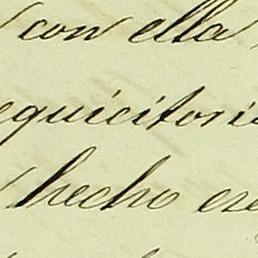 con ella
equicitori
hecho